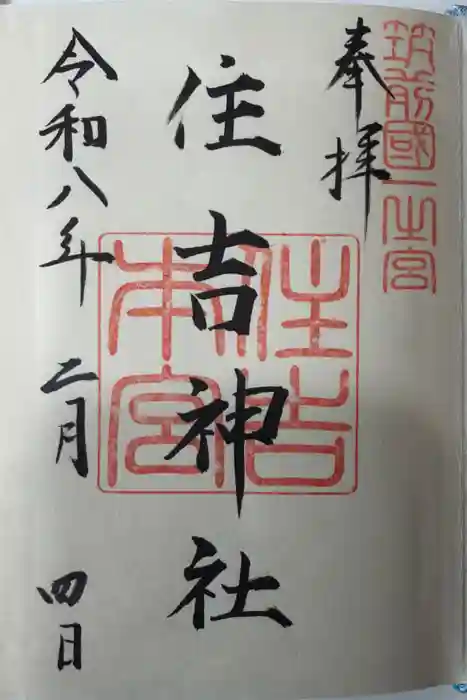 筑前國一之宮
奉拝
住吉神社
住吉本宮
令和八年二月四日